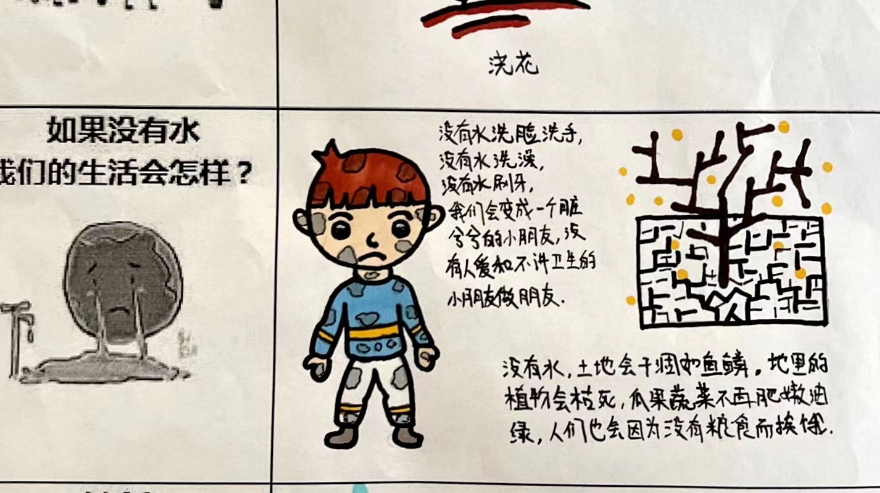 浇花
如果没有水
我们的生活会怎样？
没有水洗脸洗手，
没有水洗澡，
没有水刷牙，
我们会变成一个脏
兮兮的小朋友，没
有人爱和不讲卫生的
小朋友做朋友．
没有水，土地会干涸如鱼鳞。地里的
植物会枯死，瓜果蔬菜不再肥嫩油
绿，人们也会因为没有粮食而挨饿．